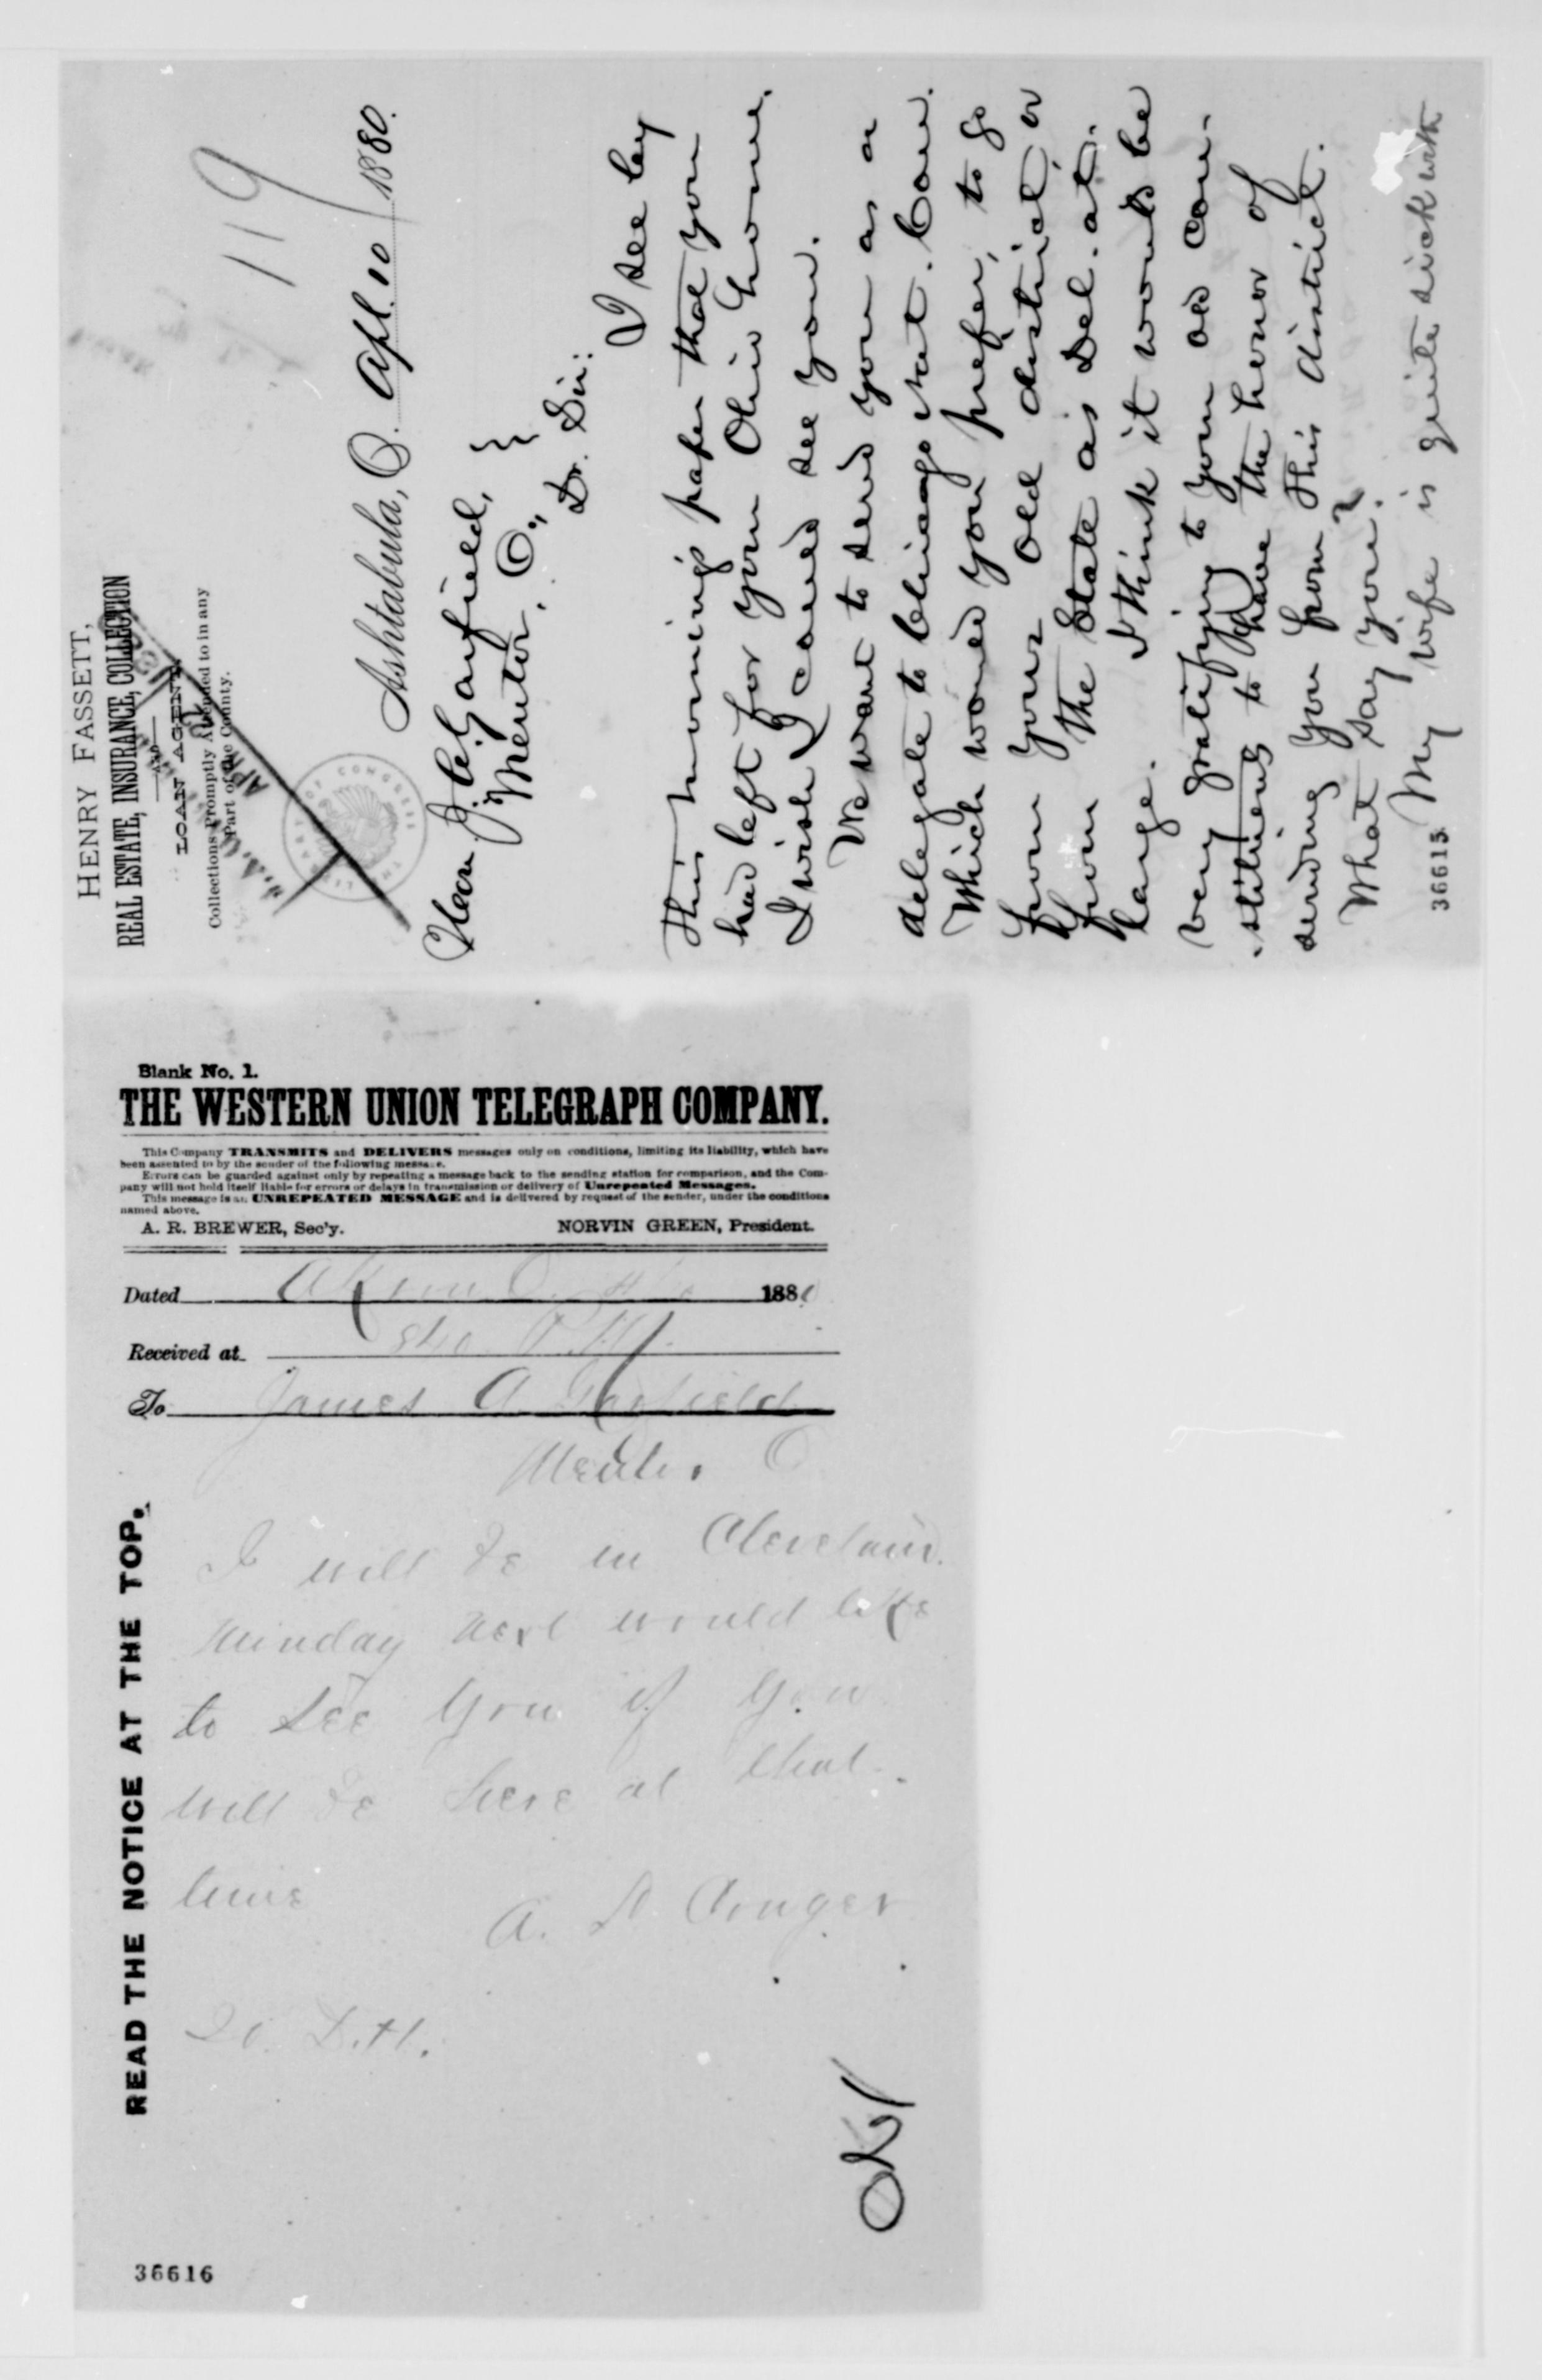 HENRY FASSETT,
REAL ESTATE, INSURANCE, COLLECTION
AND
LOAN AGENT.
Collections Promptly Attended to in any
Part of the County.
119
Ashtabula, O. Apl. 10 1880.
Hon. J. A. Garfield, }
Mentor, O.,
Dr. Sir:
I see by
this morning's paper that you
had left for your Ohio home.
I wish I could see you.
We want to send you as a
delegate to Chicago Nat. Con.
Which would you prefer, to go
from your old district or
from the State as Del. at
large. I think it would be
very gratifying to your old con-
stituents to have the honor of
sending you from this district.
What say you?
My wife is quite sick with
36615
Blank No. 1.
THE WESTERN UNION TELEGRAPH COMPANY.
This Company TRANSMITS and DELIVERS messages only on conditions, limiting its liability, which have
been assented to by the sender of the following message.
Errors can be guarded against only by repeating a message back to the sending station for comparison, and the Com-
pany will not hold itself liable for errors or delays in transmission or delivery of Unrepeated Messages.
This message is an UNREPEATED MESSAGE and is delivered by request of the sender, under the conditions
named above.
A. R. BREWER, Sec'y. NORVIN GREEN, President.
Dated Akron O. 1880
Received at 840 P.M.
To James A Garfield
Mentor O
I will be in Cleveland
Munday next would like
to see you if you
will be here at that
time
A. L. Conger
20 D.H.
OK
READ THE NOTICE AT THE TOP.
36616